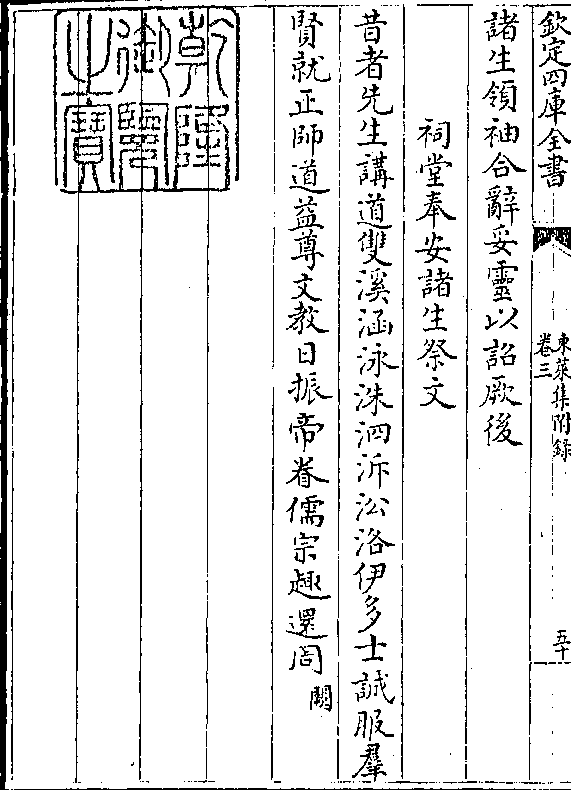 欽定四庫全書
東萊集附録
卷三
五十
諸生領袖合辭妥靈以詔厥後
祠堂奉安諸生祭文
昔者先生講道雙溪涵泳洙泗泝沿洛伊多士誠服羣
賢就正師道益尊文教日振帝眷儒宗趣還周闕
乾隆
御覽
之寶